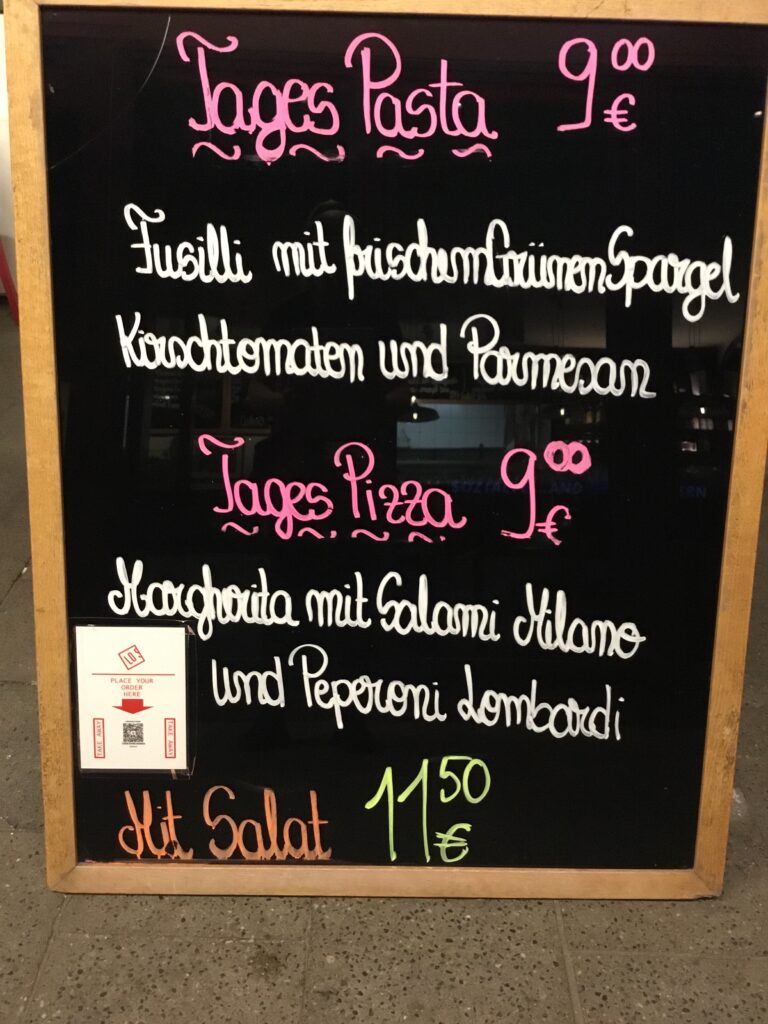 Tages Pasta 9⁰⁰ €
Fusilli mit frischem Grünen Spargel
Kirschtomaten und Parmesan
Tages Pizza 9⁰⁰ €
Margherita mit Salami Milano
und Peperoni Lombardi
PLACE YOUR
ORDER
HERE
TAKE AWAY
TAKE AWAY
Mit Salat 11⁵⁰ €